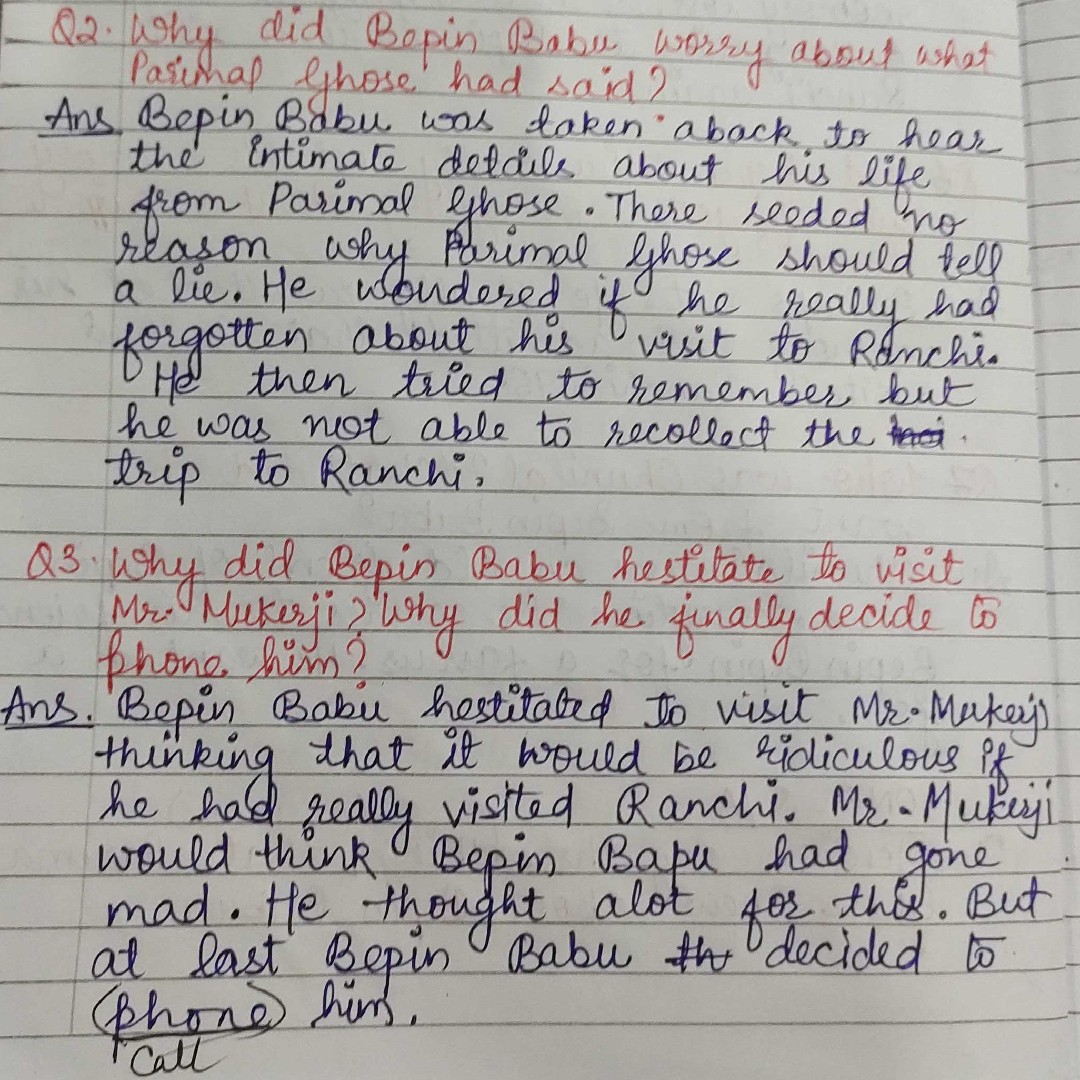 Q2. Why did Bepin Babu worry about what
Parimal Ghose had said?
Ans Bepin Babu was taken aback to hear
the intimate details about his life
from Parimal Ghose. There seeded no
reason why Parimal Ghose should tell
a lie. He wondered if he really had
forgotten about his visit to Ranchi.
He then tried to remember but
he was not able to recollect the
trip to Ranchi.
Q3. Why did Bepin Babu hestitate to visit
Mr. Mukerji? Why did he finally decide to
phone him?
Ans. Bepin Babu hestitated to visit Mr. Mukerji
thinking that it would be ridiculous if
he had really visited Ranchi. Mr. Mukerji
would think Bepin Bapu had gone
mad. He thought alot for this. But
at last Bepin Babu th decided to
(phone) him.
Call